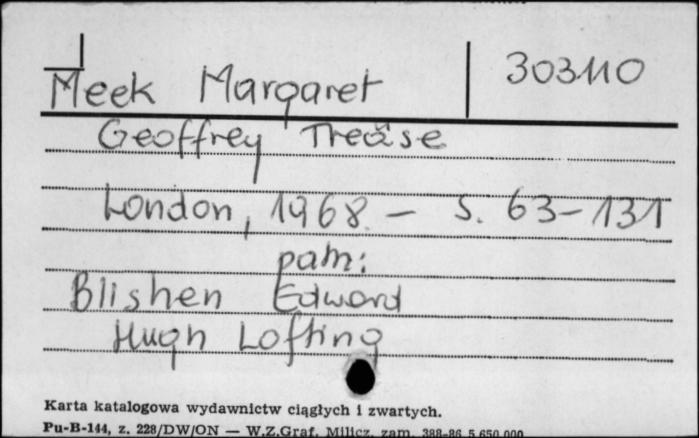 Meek Margaret 303110
Geoffrey Trease
London, 1968. – S. 63–131
pam:
Blishen Edward
Hugh Lofting
Karta katalogowa wydawnictw ciągłych i zwartych.
Pu-B-144, z. 228/DW/ON — W.Z.Graf. Milicz, zam. 388-86 5.650.000